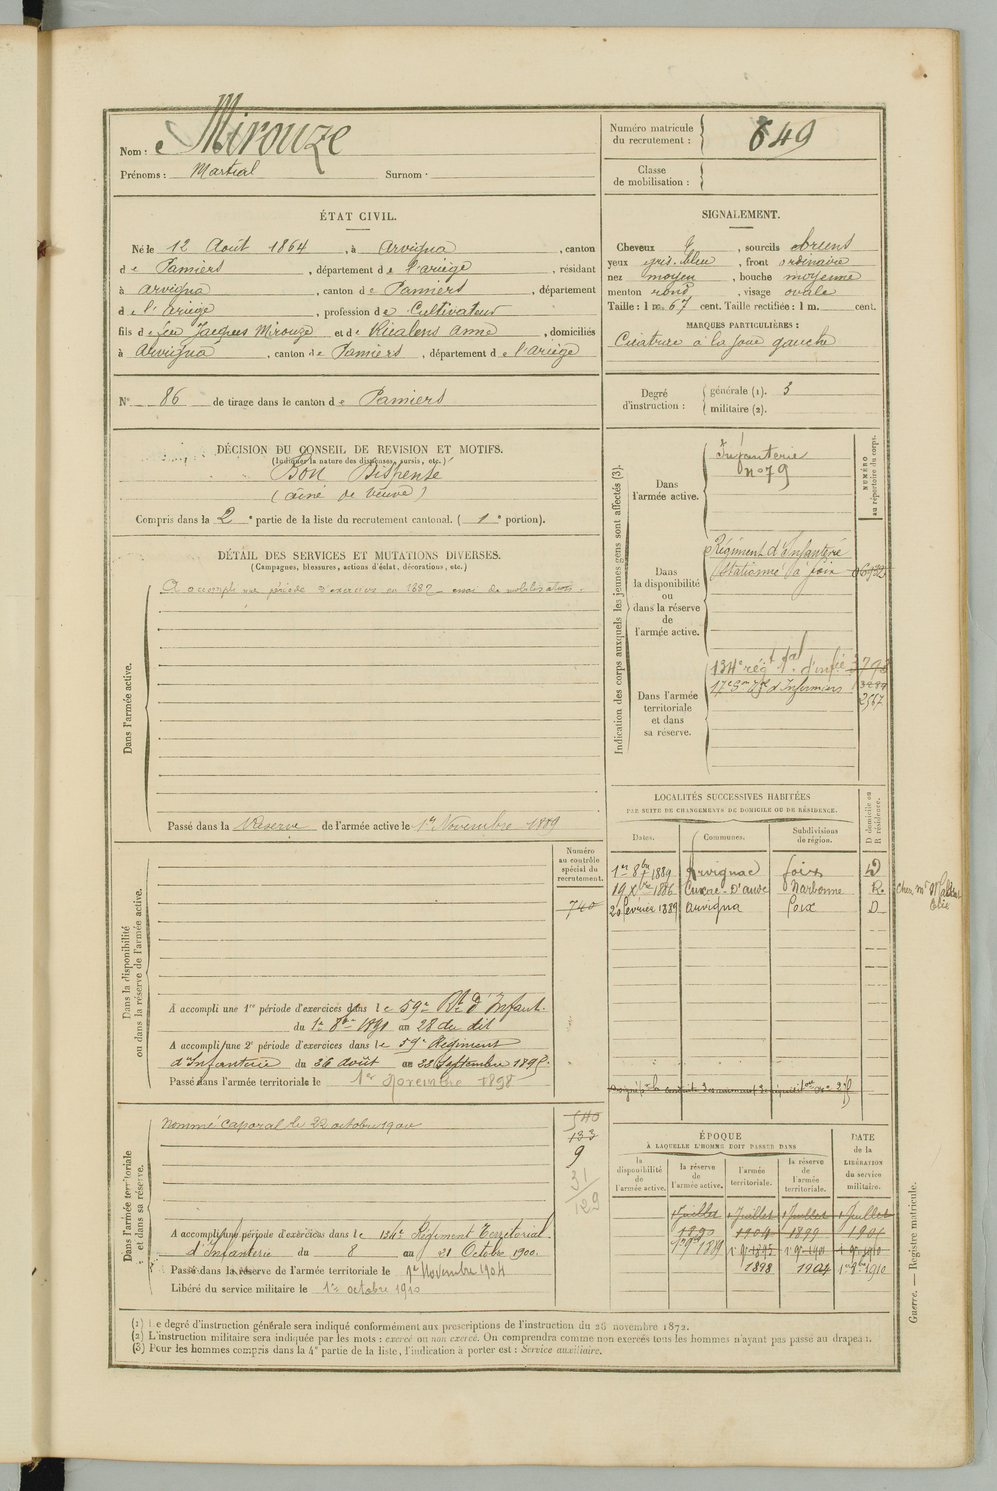 Nom : Mirouze
Prénoms : Martial Surnom :
Numéro matricule du recrutement : 649
Classe de mobilisation :
ÉTAT CIVIL.
Né le 12 Août 1864, à Arvigna, canton
de Pamiers, département de l'ariège, résidant
à arvigna, canton de Pamiers, département
de l'ariège, profession de Cultivateur
fils de feu Jacques Mirouze et de Vicalens anne, domiciliés
à Arvigna, canton de Pamiers, département de l'ariège
SIGNALEMENT.
Cheveux, sourcils bruns
yeux gris-bleu, front ordinaire
nez moyen, bouche moyenne
menton rond, visage ovale
Taille : 1 m. 67 cent. Taille rectifiée : 1 m. cent.
MARQUES PARTICULIÈRES :
Cicatrice à la joue gauche
N° 86 de tirage dans le canton de Pamiers
Degré d'instruction : générale (1). 3
militaire (2).
DÉCISION DU CONSEIL DE REVISION ET MOTIFS.
(Indiquer la nature des dispenses, sursis, etc.)
Bon Dispensé
(aîné de veuve)
Compris dans la 2e partie de la liste du recrutement cantonal. (1e portion).
DÉTAIL DES SERVICES ET MUTATIONS DIVERSES.
(Campagnes, blessures, actions d'éclat, décorations, etc.)
Dans l'armée active.
A accompli une période d'exercices en 1887 essai de mobilisation.
Passé dans la Réserve de l'armée active le 1er Novembre 1889
Indication des corps auxquels les jeunes gens sont affectés (3).
NUMÉRO au répertoire du corps.
Dans l'armée active.
Infanterie
n° 79
Dans la disponibilité ou dans la réserve de l'armée active.
Régiment d'Infanterie
Stationné à foix
Dans l'armée territoriale et dans sa réserve.
134e régt tal d'infie
17e Son d'Infirmiers
2567
LOCALITÉS SUCCESSIVES HABITÉES
PAR SUITE DE CHANGEMENTS DE DOMICILE OU DE RÉSIDENCE.
Dates. Communes. Subdivisions de région. D domicile ou R résidence.
1er 8bre 1889 Arvignac foix D
19 Xbre 1886 Cuxac-D'aude Narbonne R.
20 février 1889 arvigna foix D
Dans la disponibilité ou dans la réserve de l'armée active.
Numéro au contrôle spécial du recrutement.
740
A accompli une 1re période d'exercices dans le 59e Rt d'Infant.
du 1er 8bre 1891 au 28 du dit
A accompli une 2e période d'exercices dans le 59e Régiment
d'Infanterie du 26 août au 22 Septembre 1895
Passé dans l'armée territoriale le 1er Novembre 1898
Dans l'armée territoriale et dans sa réserve.
Nommé caporal le 22 octobre 1900
540
133
9
31
129
A accompli une période d'exercices dans le 134e Régiment Territorial
d'Infanterie du 8 au 21 Octobre 1900.
Passé dans la réserve de l'armée territoriale le 1er Novembre 1904
Libéré du service militaire le 1er octobre 1910
ÉPOQUE
À LAQUELLE L'HOMME DOIT PASSER DANS
la disponibilité de l'armée active. la réserve de l'armée active. l'armée territoriale. la réserve de l'armée territoriale.
DATE de la LIBÉRATION du service militaire.
1 Juillet 1 Juillet 1 Juillet 1 Juillet
1898 1904 1er 9bre 1910
(1) Le degré d'instruction générale sera indiqué conformément aux prescriptions de l'instruction du 26 novembre 1872.
(2) L'instruction militaire sera indiquée par les mots : exercé ou non exercé. On comprendra comme non exercés tous les hommes n'ayant pas passé au drapeau.
(3) Pour les hommes compris dans la 4e partie de la liste, l'indication à porter est : Service auxiliaire.
Guerre. — Registre matricule.